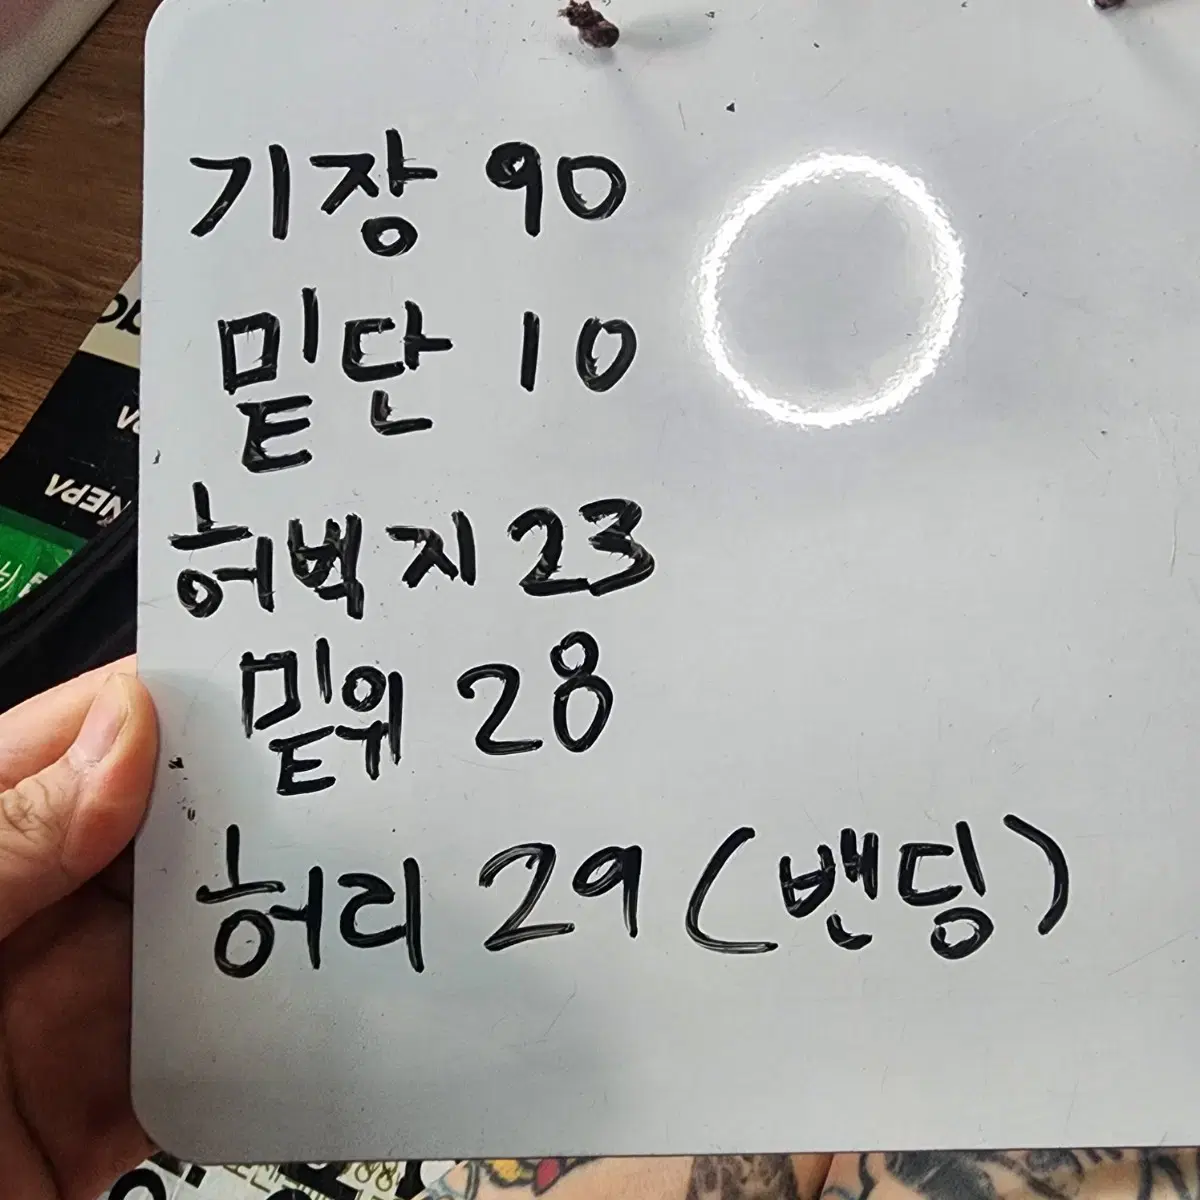 기장 90
밑단 10
허벅지 23
밑위 28
허리 29 (밴딩)
NEPA